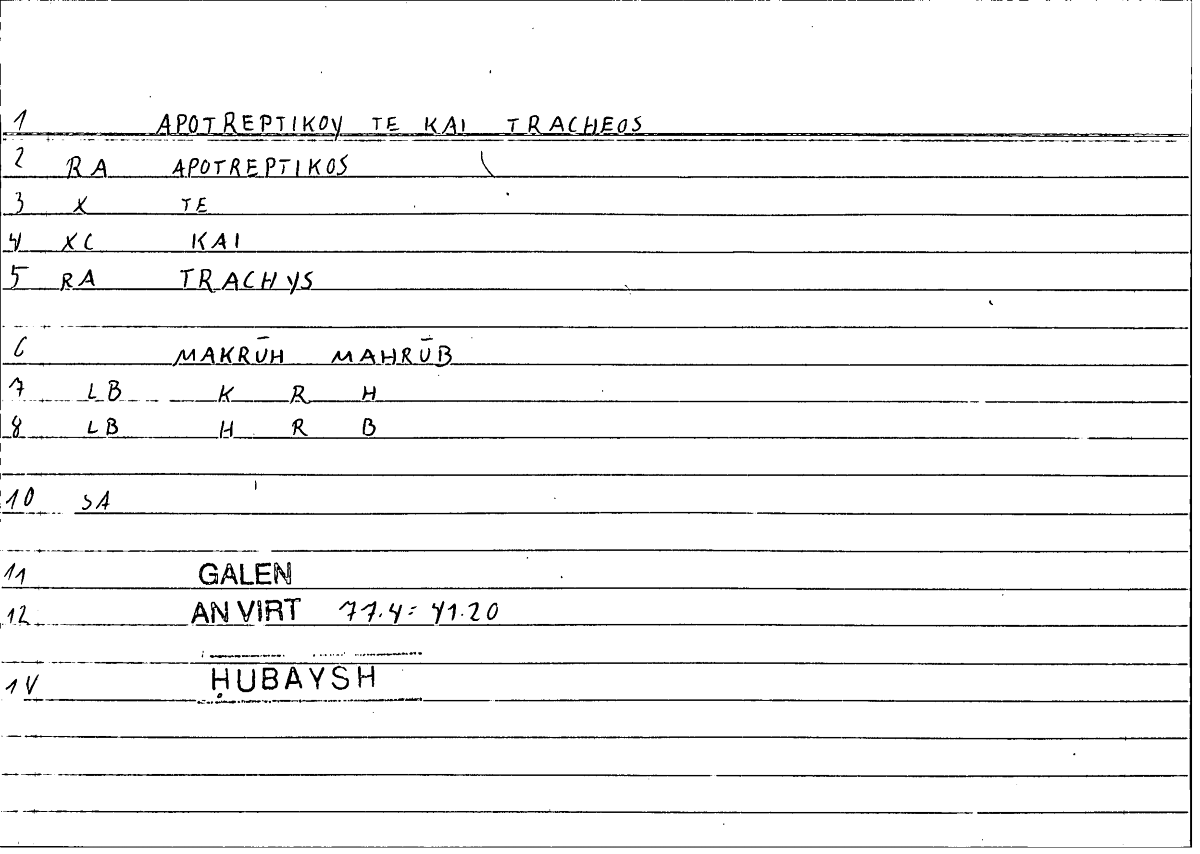 1 APOTREPTIKOY TE KAI TRACHEOS
2 RA APOTREPTIKOS
3 X TE
4 XC KAI
5 RA TRACHYS
6 MAKRŪH MAHRŪB
7 LB K R H
8 LB H R B
10 SA
11 GALEN
12 AN VIRT 77.4 : 41.20
14 ḤUBAYSH